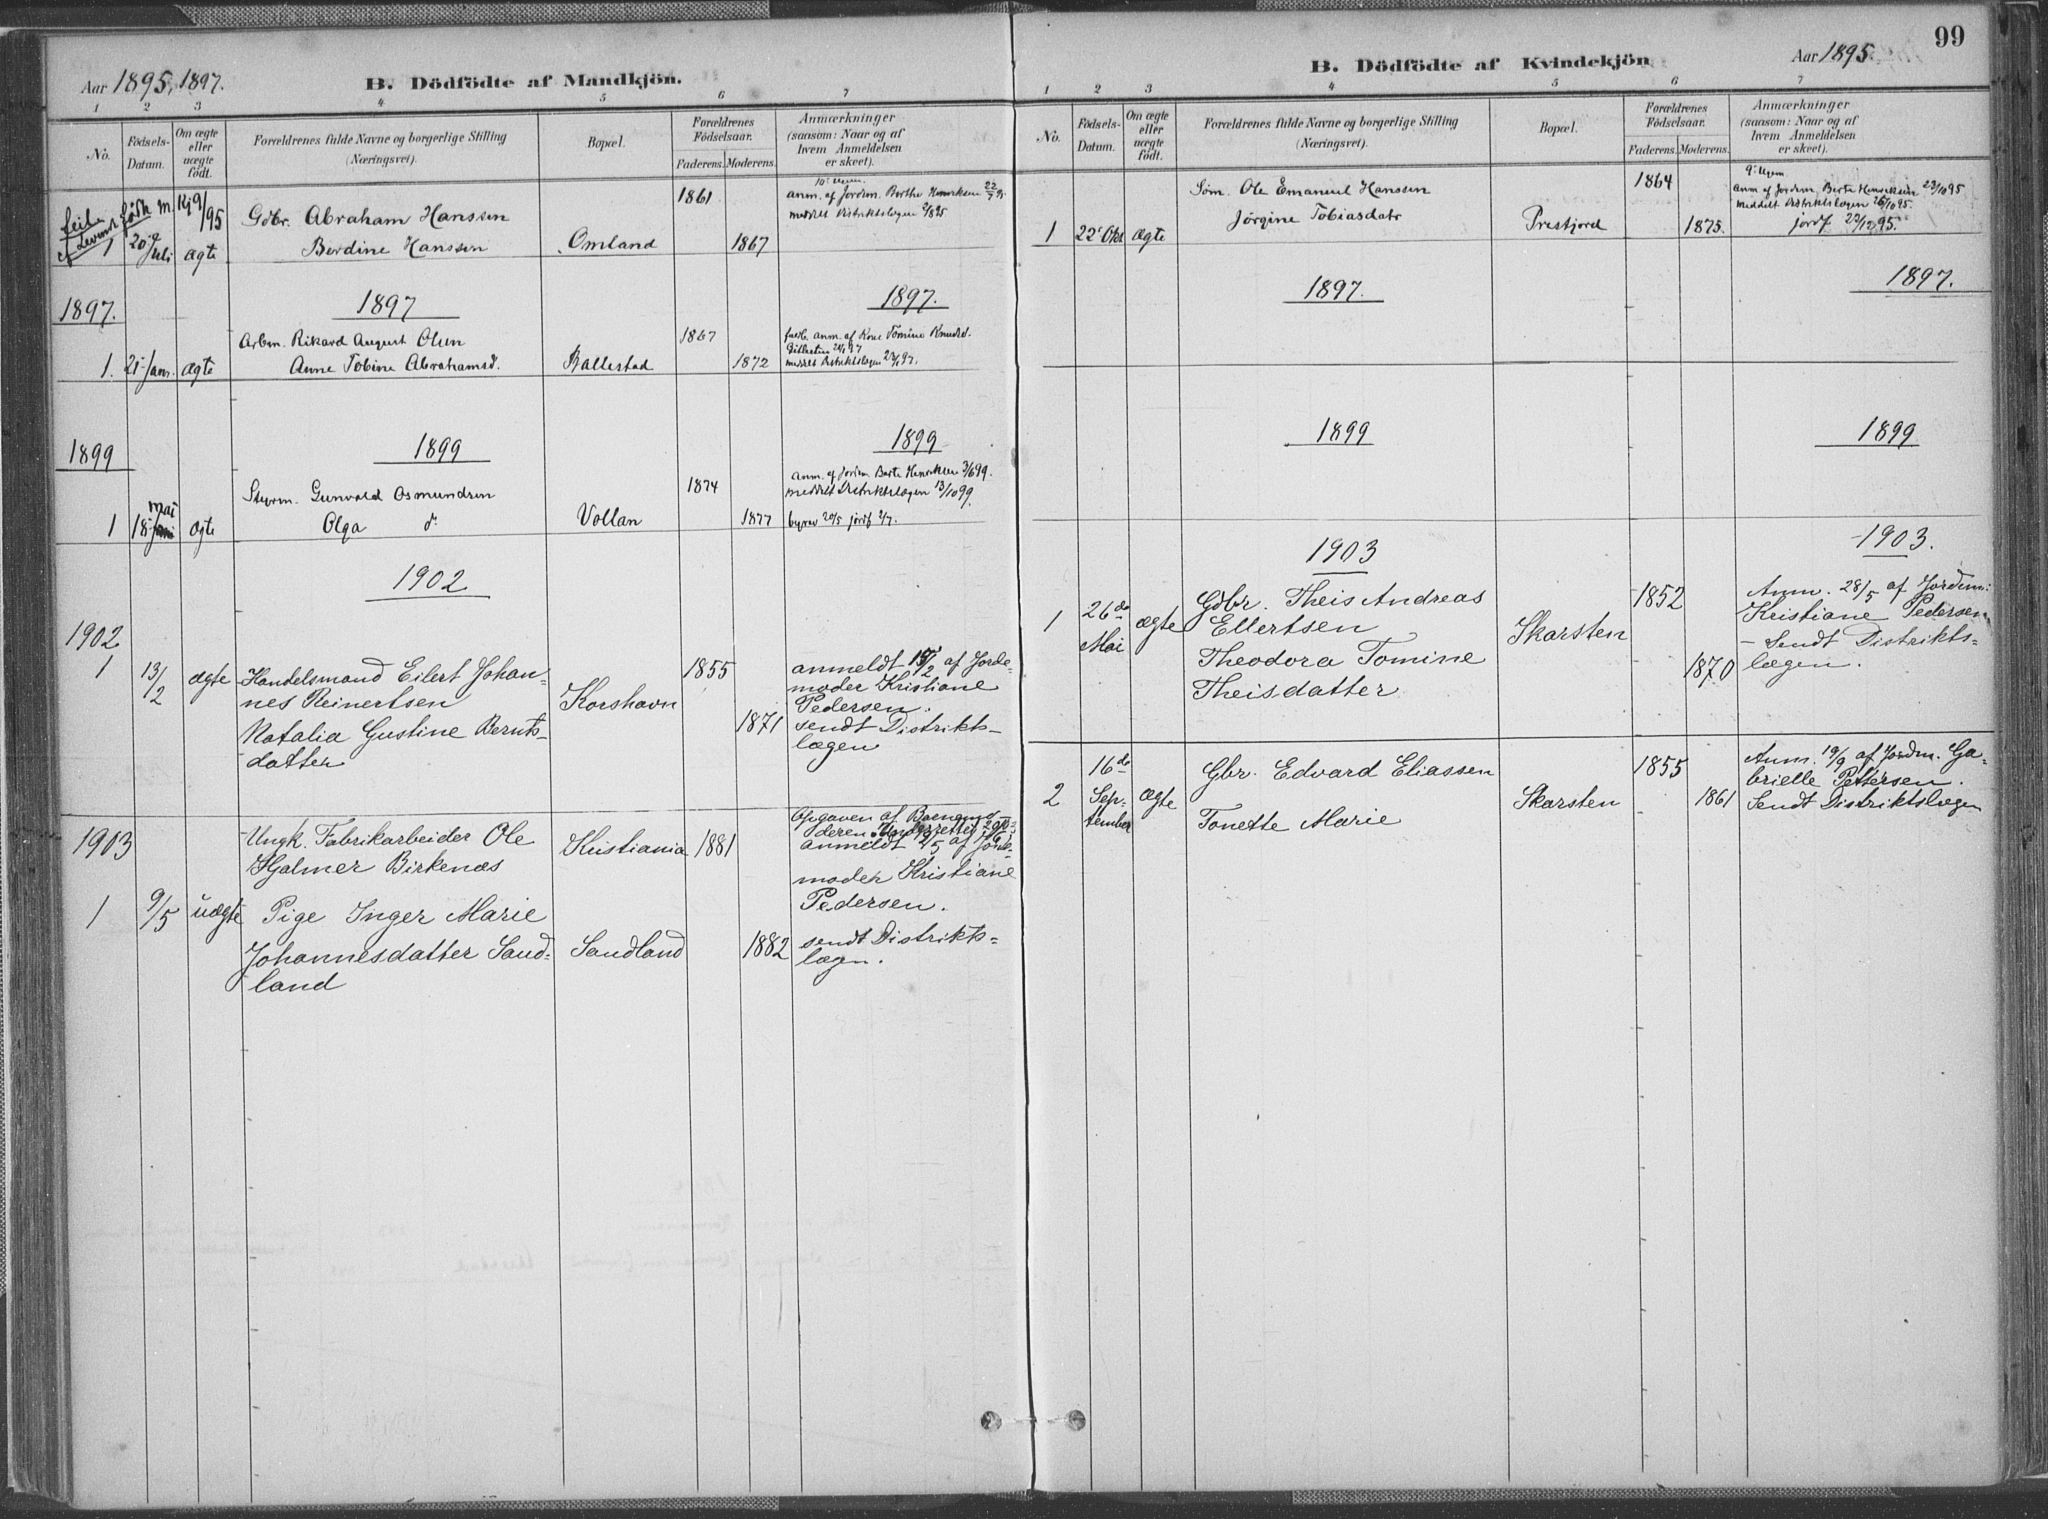 99
Aar 1895, 1897.
B. Dödfödte af Mandkjön.
1 2 3 4 5 6 7
No.
Födsels-
Datum.
Om ægte
eller
uægte
födt.
Forældrenes fulde Navne og borgerlige Stilling
(Næringsvei).
Bopæl.
Forældrenes
Födselsaar.
Faderens. Moderens.
Anmærkninger
(saasom: Naar og af
hvem Anmeldelsen
er skeet).
1 20 Juli ægte
Gdbr. Abraham Hanssen
Berdine Hanssen
Omland
1861
1867
anm. af Jordm. Berthe Henriksen 22/7 95
meddelt Distriktslægen 2/8 95
1897. 1897 1897.
1. 21 Jan. ægte
Arbm. Rikard August Olsen
Anne Tobine Abrahamsd.
Rallestad
1867
1872
anm. af Kone Tomine Knudsd.
meddelt Distriktslægen
1899 1899 1899
1 18 mai ægte
Styrm. Gunvald Osmundsen
Olga d.
Vollan
1874
1877
anm. af Jordem. Berte Henriksen 3/6 99.
meddelt Distriktslægen 13/10 99.
20/5 jordf 2/7.
1902
1902
1 13/2 ægte
Handelsmand Eilert Johan-
nes Reinertsen
Natalia Gustine Bernts-
datter
Korshavn
1855
1871
anmeldt 15/2 af Jorde-
moder Kristiane
Pedersen.
sendt Distrikts-
lægen
1903
1 9/5 uægte
Ungk. Fabrikarbeider Ole
Hjalmer Birkenæs
Pige Inger Marie
Johannesdatter Sand-
land
Kristiania
Sandland
1881
1882
Opgaven af
anmeldt af Jorde-
moder Kristiane
Pedersen.
sendt Distrikts-
lægen.
B. Dödfödte af Kvindekjön
Aar 1895.
1 2 3 4 5 6 7
No.
Födsels-
Datum.
Om ægte
eller
uægte
födt.
Forældrenes fulde Navne og borgerlige Stilling
(Næringsvei).
Bopæl.
Forældrenes
Födselsaar.
Faderens. Moderens.
Anmærkninger
(saasom: Naar og af
hvem Anmeldelsen
er skeet).
1 22 Okt ægte
Søm. Ole Emanuel Hanssen
Jörgine Tobiasdatr
Prestjord
1864
1875.
anm af Jordm. Berte Henriksen 23/10 95
meddelt Distriktslægen 26/10 95.
jordf 22/12 95.
1897. 1897.
1899 1899
1903 1903.
1 26de Mai ægte
Gdbr. Theis Andreas
Ellertsen
Theodora Tomine
Theisdatter
Skarsten
1852
1870
Anm. 28/5 af Jordem.
Kristiane Pedersen
- Sendt Distrikts-
lægen.
2 16de Sep-
tember ægte
Gbr. Edvard Eliassen
Tonette Marie
Skarsten
1855
1861
Anm. 19/9 af Jordm. Ga-
brielle Pettersen.
Sendt Distriktslægen